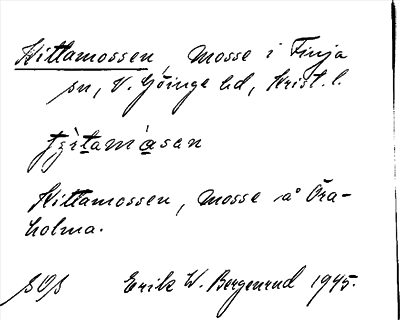 Kittamossen, mosse i Finja
sn, V. Göinge hd, Krist. l.
Kittamossen, mosse å Öra-
holma.
SOS Erik W. Bergenrud 1945.